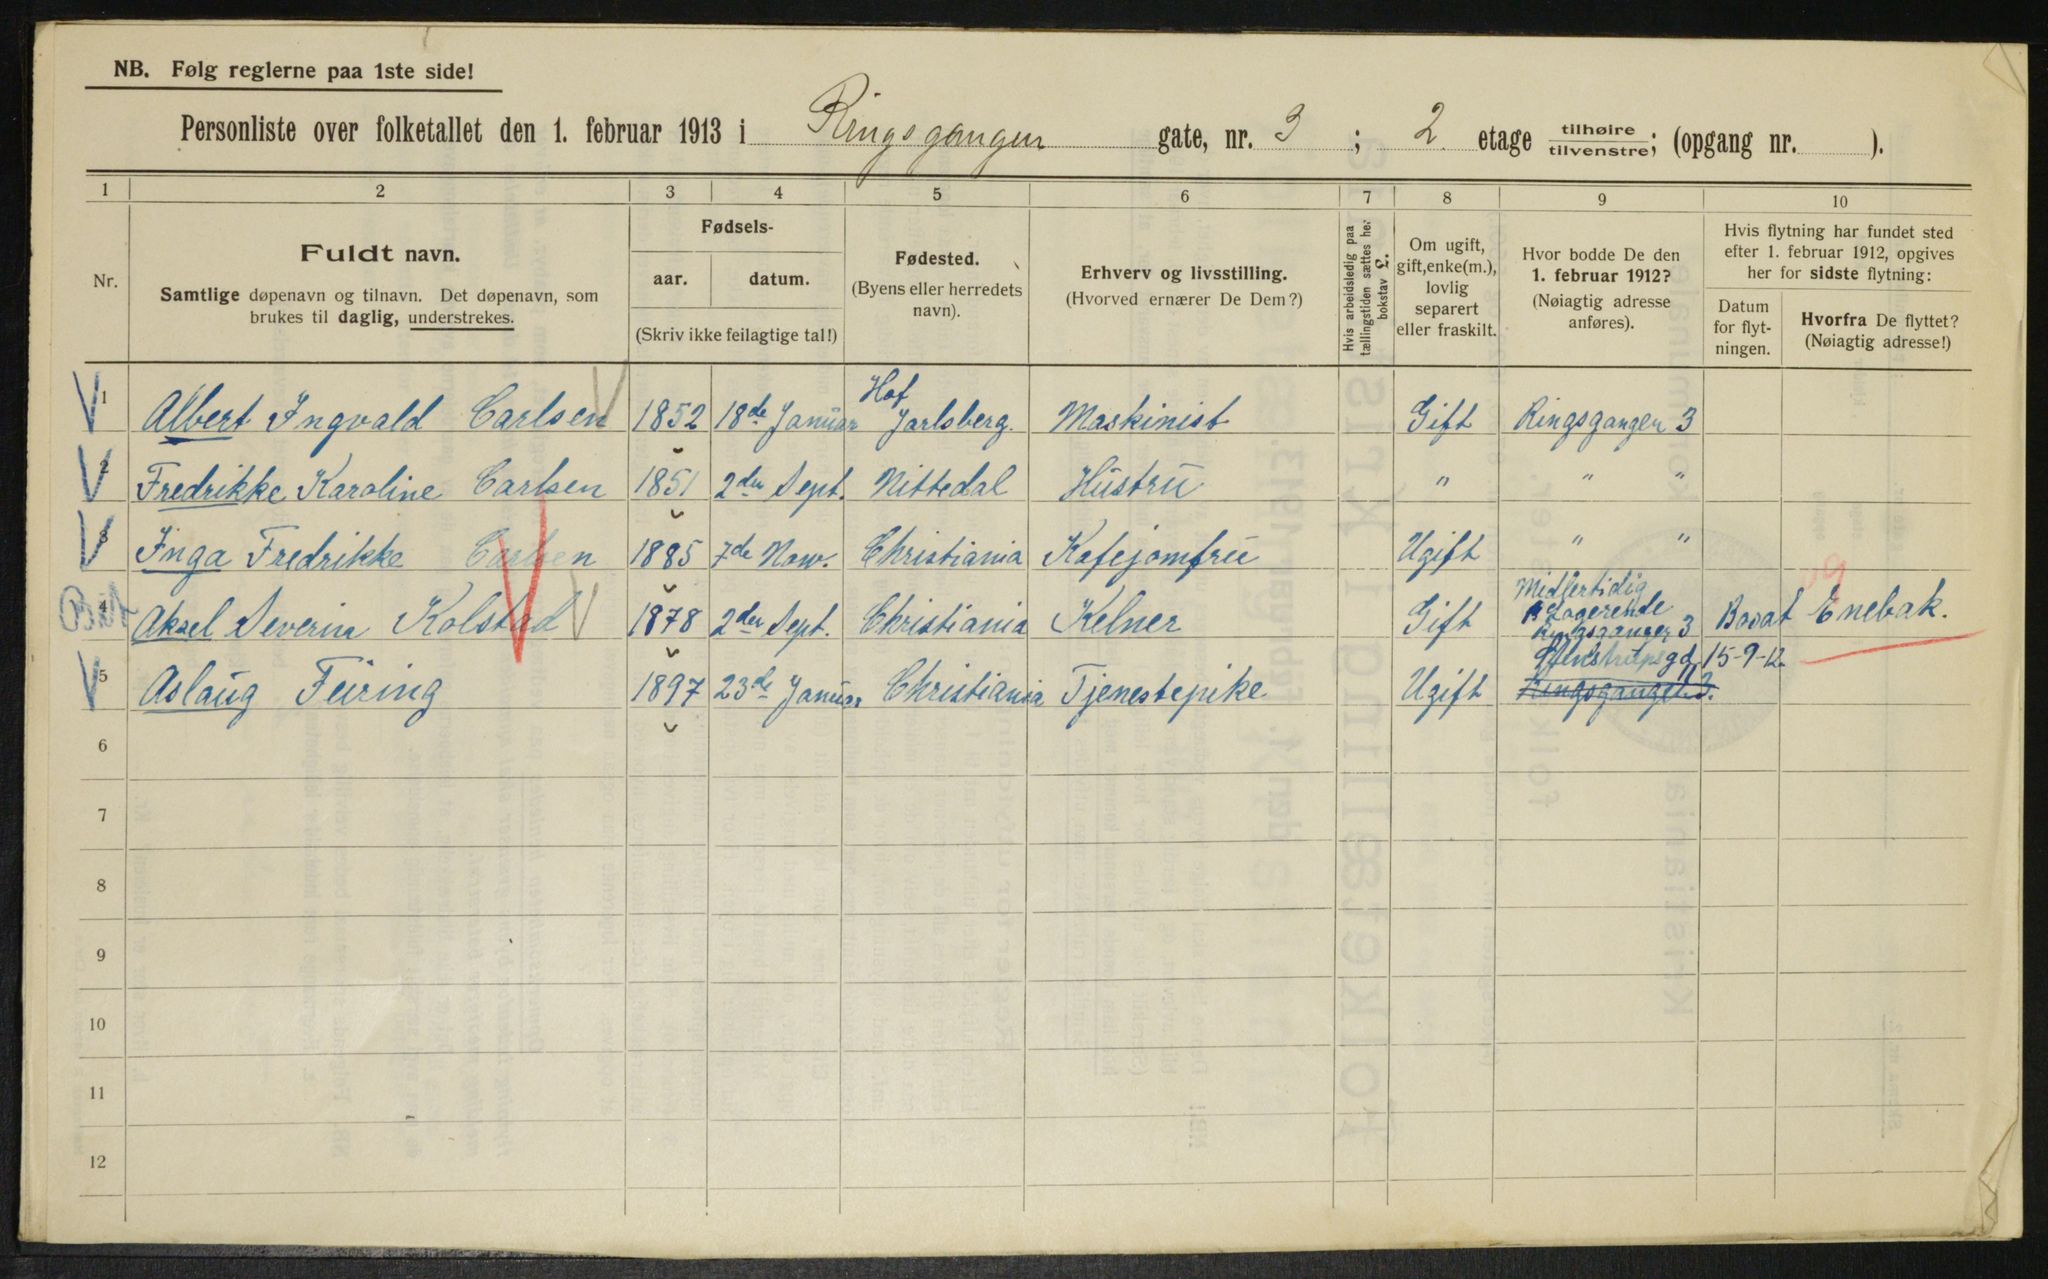 NB. Følg reglerne paa 1ste side!
Personliste over folketallet den 1. februar 1913 i Ringsgangen gate, nr. 3 ; 2 etage tilhøire tilvenstre; (opgang nr. ).
1 2 3 4 5 6 7 8 9 10
Nr.
Fuldt navn.
Samtlige døpenavn og tilnavn. Det døpenavn, som
brukes til daglig, understrekes.
Fødsels-
aar. datum.
(Skriv ikke feilagtige tal!)
Fødested.
(Byens eller herredets
navn).
Erhverv og livsstilling.
(Hvorved ernærer De Dem?)
Hvis arbeidsledig paa
tællingstiden sættes her
bokstav L.
Om ugift,
gift, enke(m.),
lovlig
separert
eller fraskilt.
Hvor bodde De den
1. februar 1912?
(Nøiagtig adresse
anføres).
Hvis flytning har fundet sted
efter 1. februar 1912, opgives
her for sidste flytning:
Datum
for flyt-
ningen.
Hvorfra De flyttet?
(Nøiagtig adresse!)
1 Albert Ingvald Carlsen 1852 18de Januar Hof Jarlsberg. Maskinist Gift Ringsgangen 3
2 Fredrikke Karoline Carlsen 1851 2den Sept. Nittedal Hustru " " "
3 Inga Fredrikke Carlsen 1885 7de Nov. Christiania Kafejomfru Ugift " "
4 Aksel Severin Kolstad 1878 2den Sept. Christiania Kelner Gift Midlertidig Logerende Ringsgangen 3 Bosat Enebak.
5 Aslaug Feiring 1897 23de Januar Christiania Tjenestepike Ugift Ringsgangen 3. 15-9-12
6
7
8
9
10
11
12